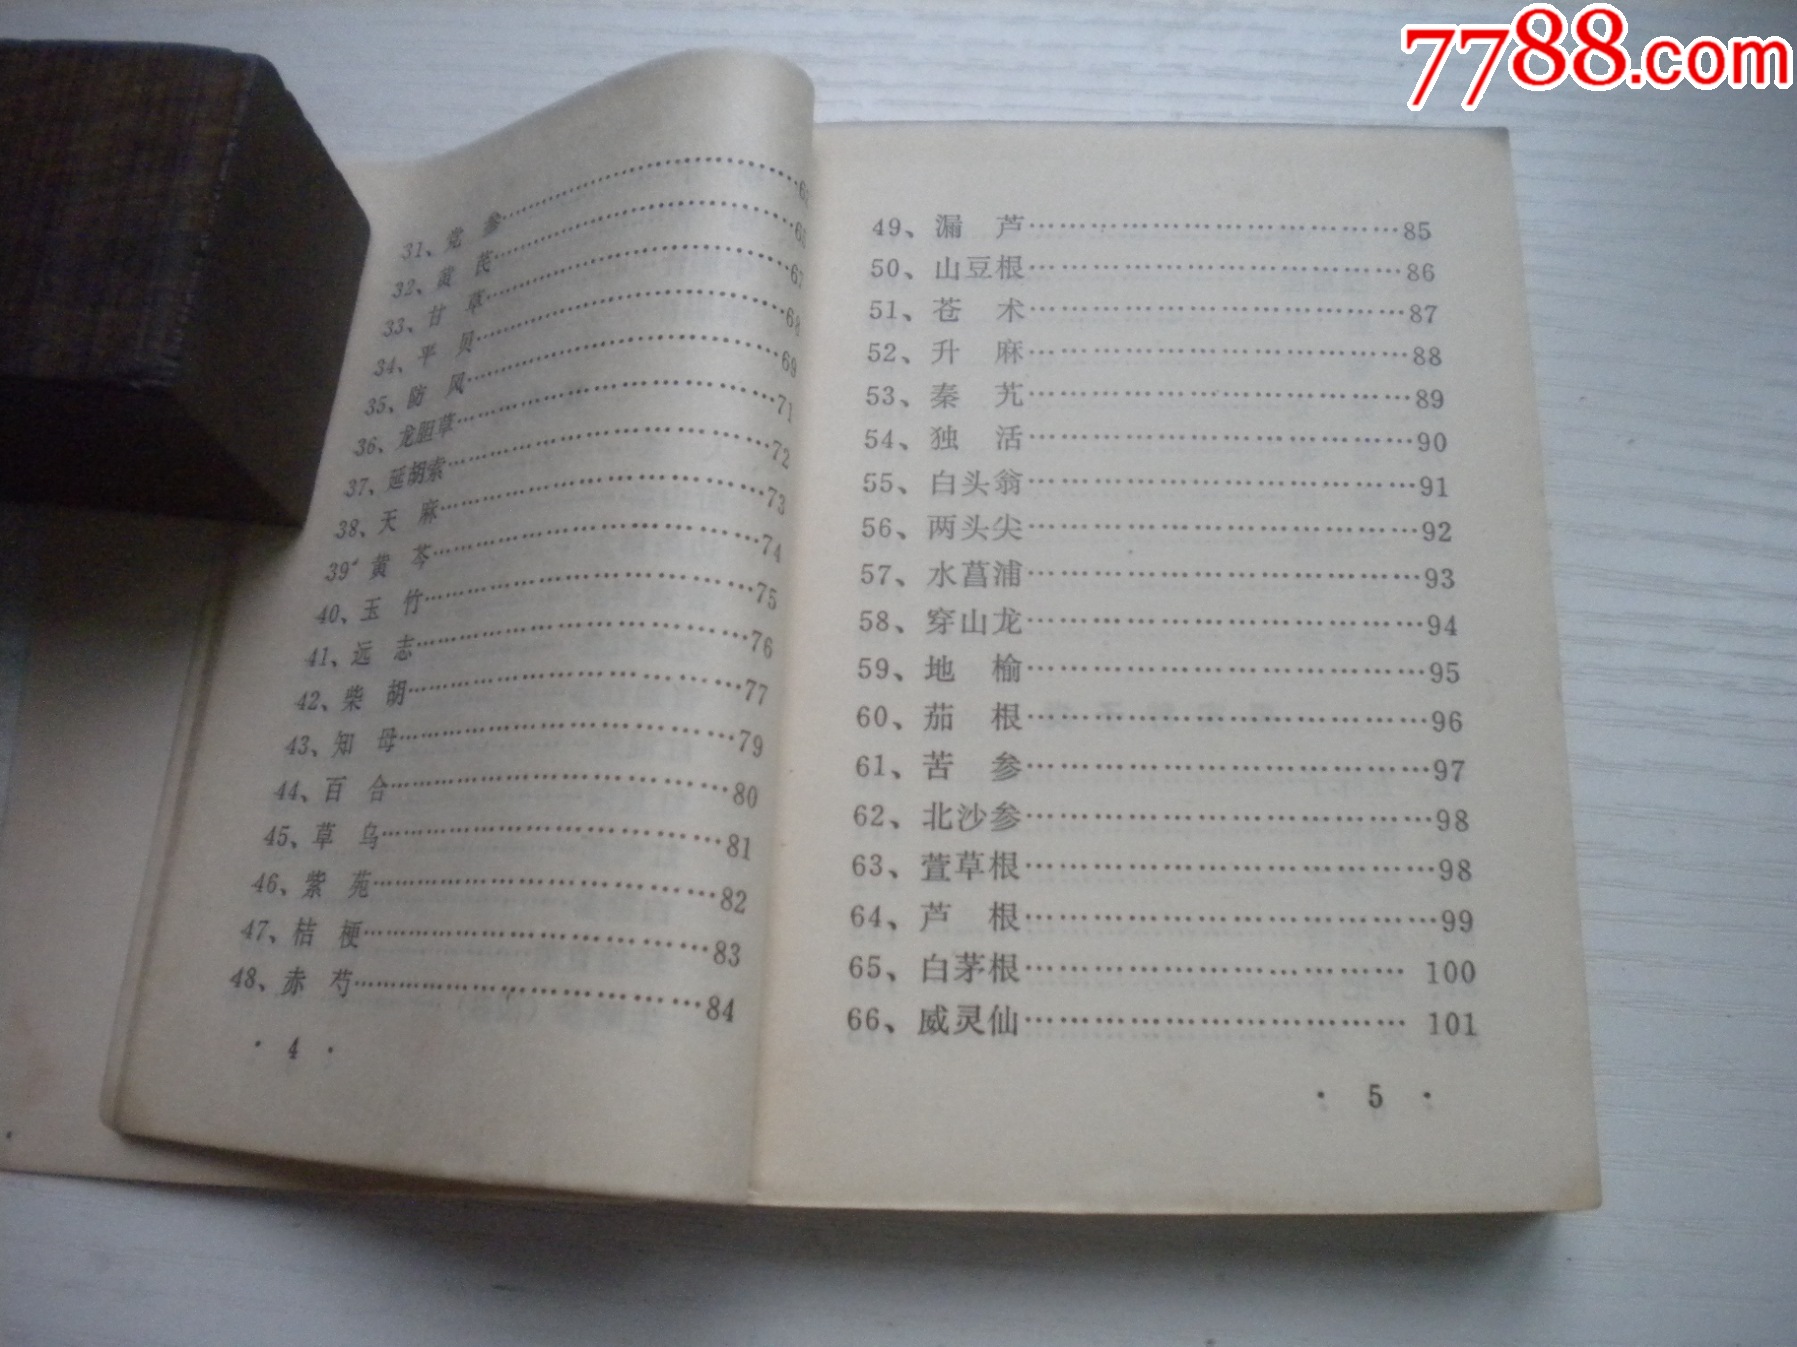 7788.com
31、党 参…………6
32、黄 芪…………6
33、甘 草…………67
34、平 贝…………68
35、防 风…………69
36、龙胆草…………71
37、延胡索…………72
38、天 麻…………73
39、黄 芩…………74
40、玉 竹…………75
41、远 志…………76
42、柴 胡…………77
43、知 母…………79
44、百 合…………80
45、草 乌…………81
46、紫 苑…………82
47、桔 梗…………83
48、赤 芍…………84
· 4 ·
49、漏 芦…………85
50、山豆根…………86
51、苍 术…………87
52、升 麻…………88
53、秦 艽…………89
54、独 活…………90
55、白头翁…………91
56、两头尖…………92
57、水菖浦…………93
58、穿山龙…………94
59、地 榆…………95
60、茄 根…………96
61、苦 参…………97
62、北沙参…………98
63、萱草根…………98
64、芦 根…………99
65、白茅根………… 100
66、威灵仙………… 101
· 5 ·